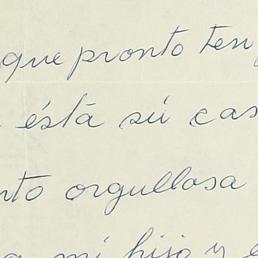 que pronto ten
ésta sú cas
nto orgullosa
mi hijo y e